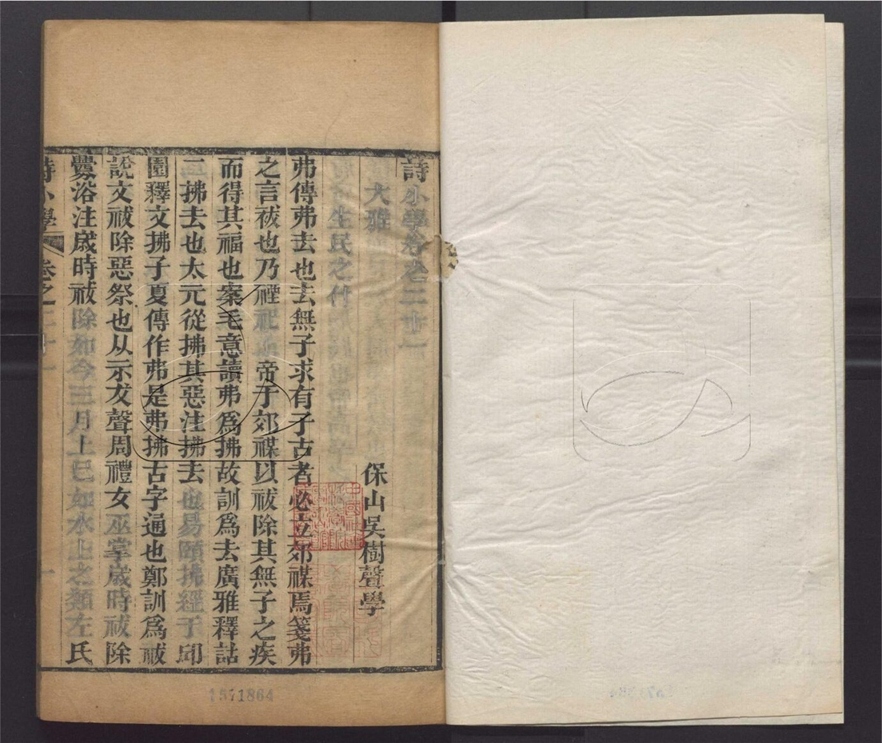 詩小學卷之二十一
保山吳樹聲學
大雅
生民之什
弗傳弗去也去無子求有子古者必立郊禖焉箋弗
之言祓也乃禋祀帝于郊禖以祓除其無子之疾
而得其福也案毛意讀弗為拂故訓為去廣雅釋詁
二拂去也太元從拂其惡注拂去也易頤拂經于邱
園釋文拂子夏傳作弗是弗拂古字通也鄭訓為祓
說文祓除惡祭也从示犮聲周禮女巫掌歲時祓除
釁浴注歲時祓除如今三月上巳如水上之類左氏
詩小學 卷之二十一 一
1571864